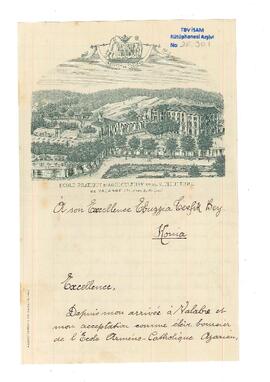 TDV İSAM
Kütüphanesi Arşivi
No:
ECOLE PRATIQUE D'AGRICULTURE
DE VALABRE
À son Excellence Ebuzzia Tevfik Bey
Konia
Excellence,
Depuis mon arrivée à Valabre et
mon acceptation comme élève boursier
de l'Ecole Armeno-Catholique Azarian,